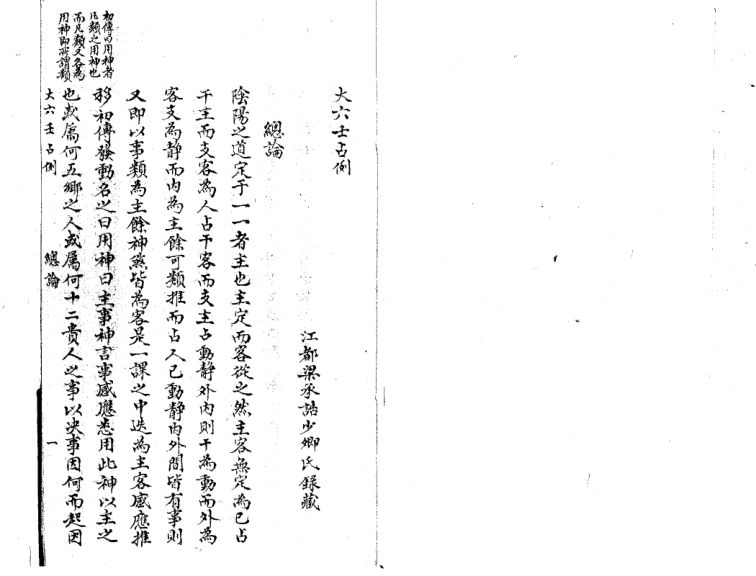 大六壬占例
江都梁承誥少卿氏錄藏
總論
陰陽之道定于一一者主也主定而客從之然主客無定為己占
干主而支客為人占干客而支主占動靜外內則干為動而外為
客支為靜而內為主餘可類推而占人己動靜內外間皆有事則
又即以事類為主餘神煞皆為客是一課之中迭為主客感應推
移初傳發動名之曰用神曰主事神言事感應悉用此神以主之
也或屬何五鄉之人或屬何十二貴人之事以决事因何而起因
初傳曰用神者
凡類之用神也
而凡類又各為
用神即所謂類
大六壬占例
總論
一